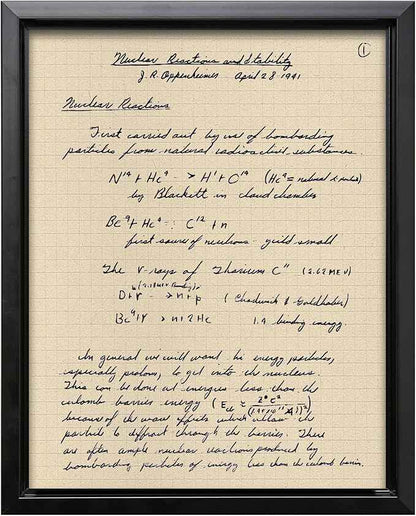 ①
Nuclear Reactions and Stability
J. R. Oppenheimer April 28 1941
Nuclear Reactions
First carried out by use of bombarding
particles from natural radioactive substances.
N¹⁴ + He⁴ → H¹ + O¹⁷ (He⁴ = natural α particles)
by Blackett in cloud chamber
Be⁹ + He⁴ = C¹² + n
first source of neutrons - yield small
The γ-rays of Thorium C" (2.62 MEV)
D + γ → n + p (Chadwick & Goldhaber)
Be⁹ + γ → n + 2He 1.9 binding energy.
In general we will want hi energy particles,
especially protons, to get into the nucleus.
This can be done at energies less than the
coulomb barrier energy
because of the wave effects which allow the
particle to diffract through the barrier. There
are often ample nuclear reactions produced by
bombarding particles of energy less than the coulomb barrier.